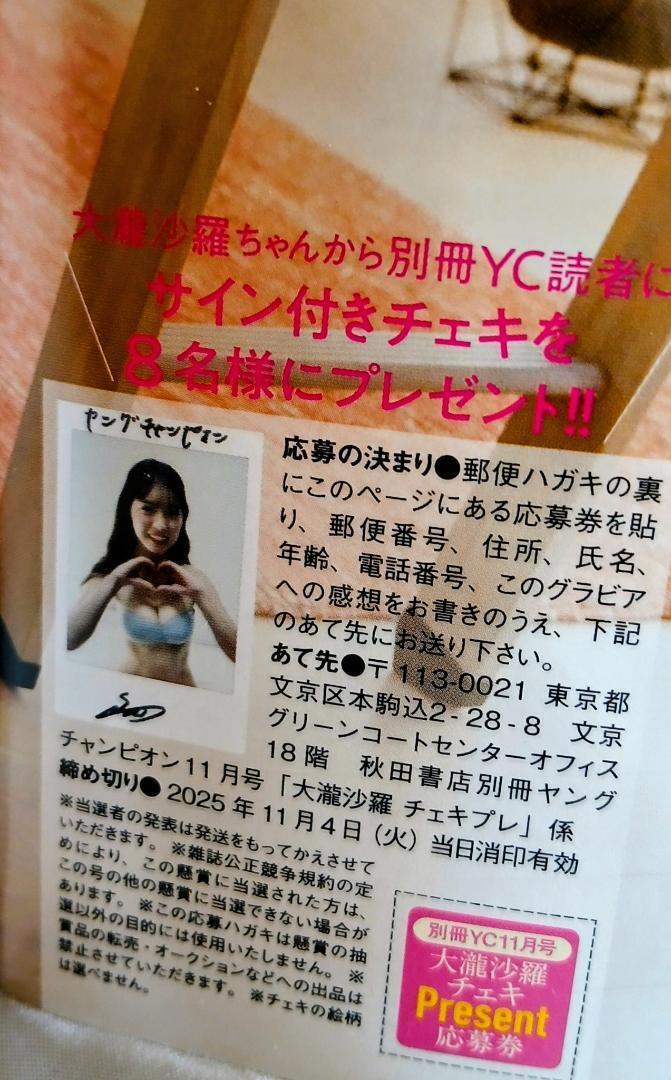 大瀧沙羅ちゃんから別冊YC読者に
サイン付きチェキを
8名様にプレゼント!!
ヤングチャンピオン
応募の決まり●郵便ハガキの裏
にこのページにある応募券を貼
り、郵便番号、住所、氏名、
年齢、電話番号、このグラビア
への感想をお書きのうえ、下記
のあて先にお送り下さい。
あて先●〒113-0021 東京都
文京区本駒込2-28-8 文京
グリーンコートセンターオフィス
18階 秋田書店別冊ヤング
チャンピオン11月号「大瀧沙羅 チェキプレ」係
締め切り●2025年11月4日(火)当日消印有効
※当選者の発表は発送をもってかえさせて
いただきます。※雑誌公正競争規約の定
めにより、この懸賞に当選された方は、
この号の他の懸賞に当選できない場合が
あります。※この応募ハガキは懸賞の抽
選以外の目的には使用いたしません。※
賞品の転売・オークションなどへの出品は
禁止させていただきます。※チェキの絵柄
は選べません。
別冊YC11月号
大瀧沙羅
チェキ
Present
応募券